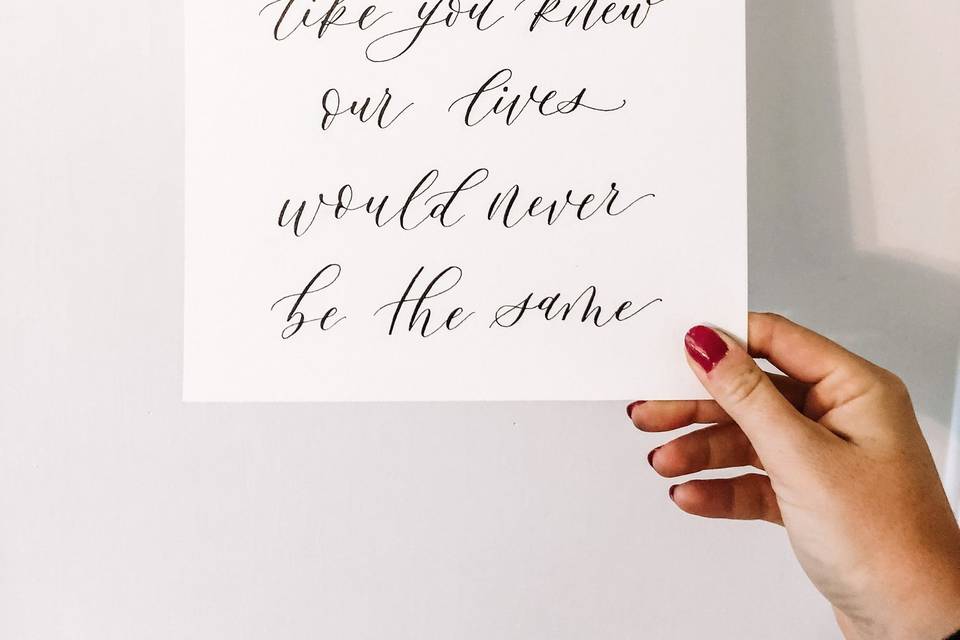 like you knew
our lives
would never
be the same